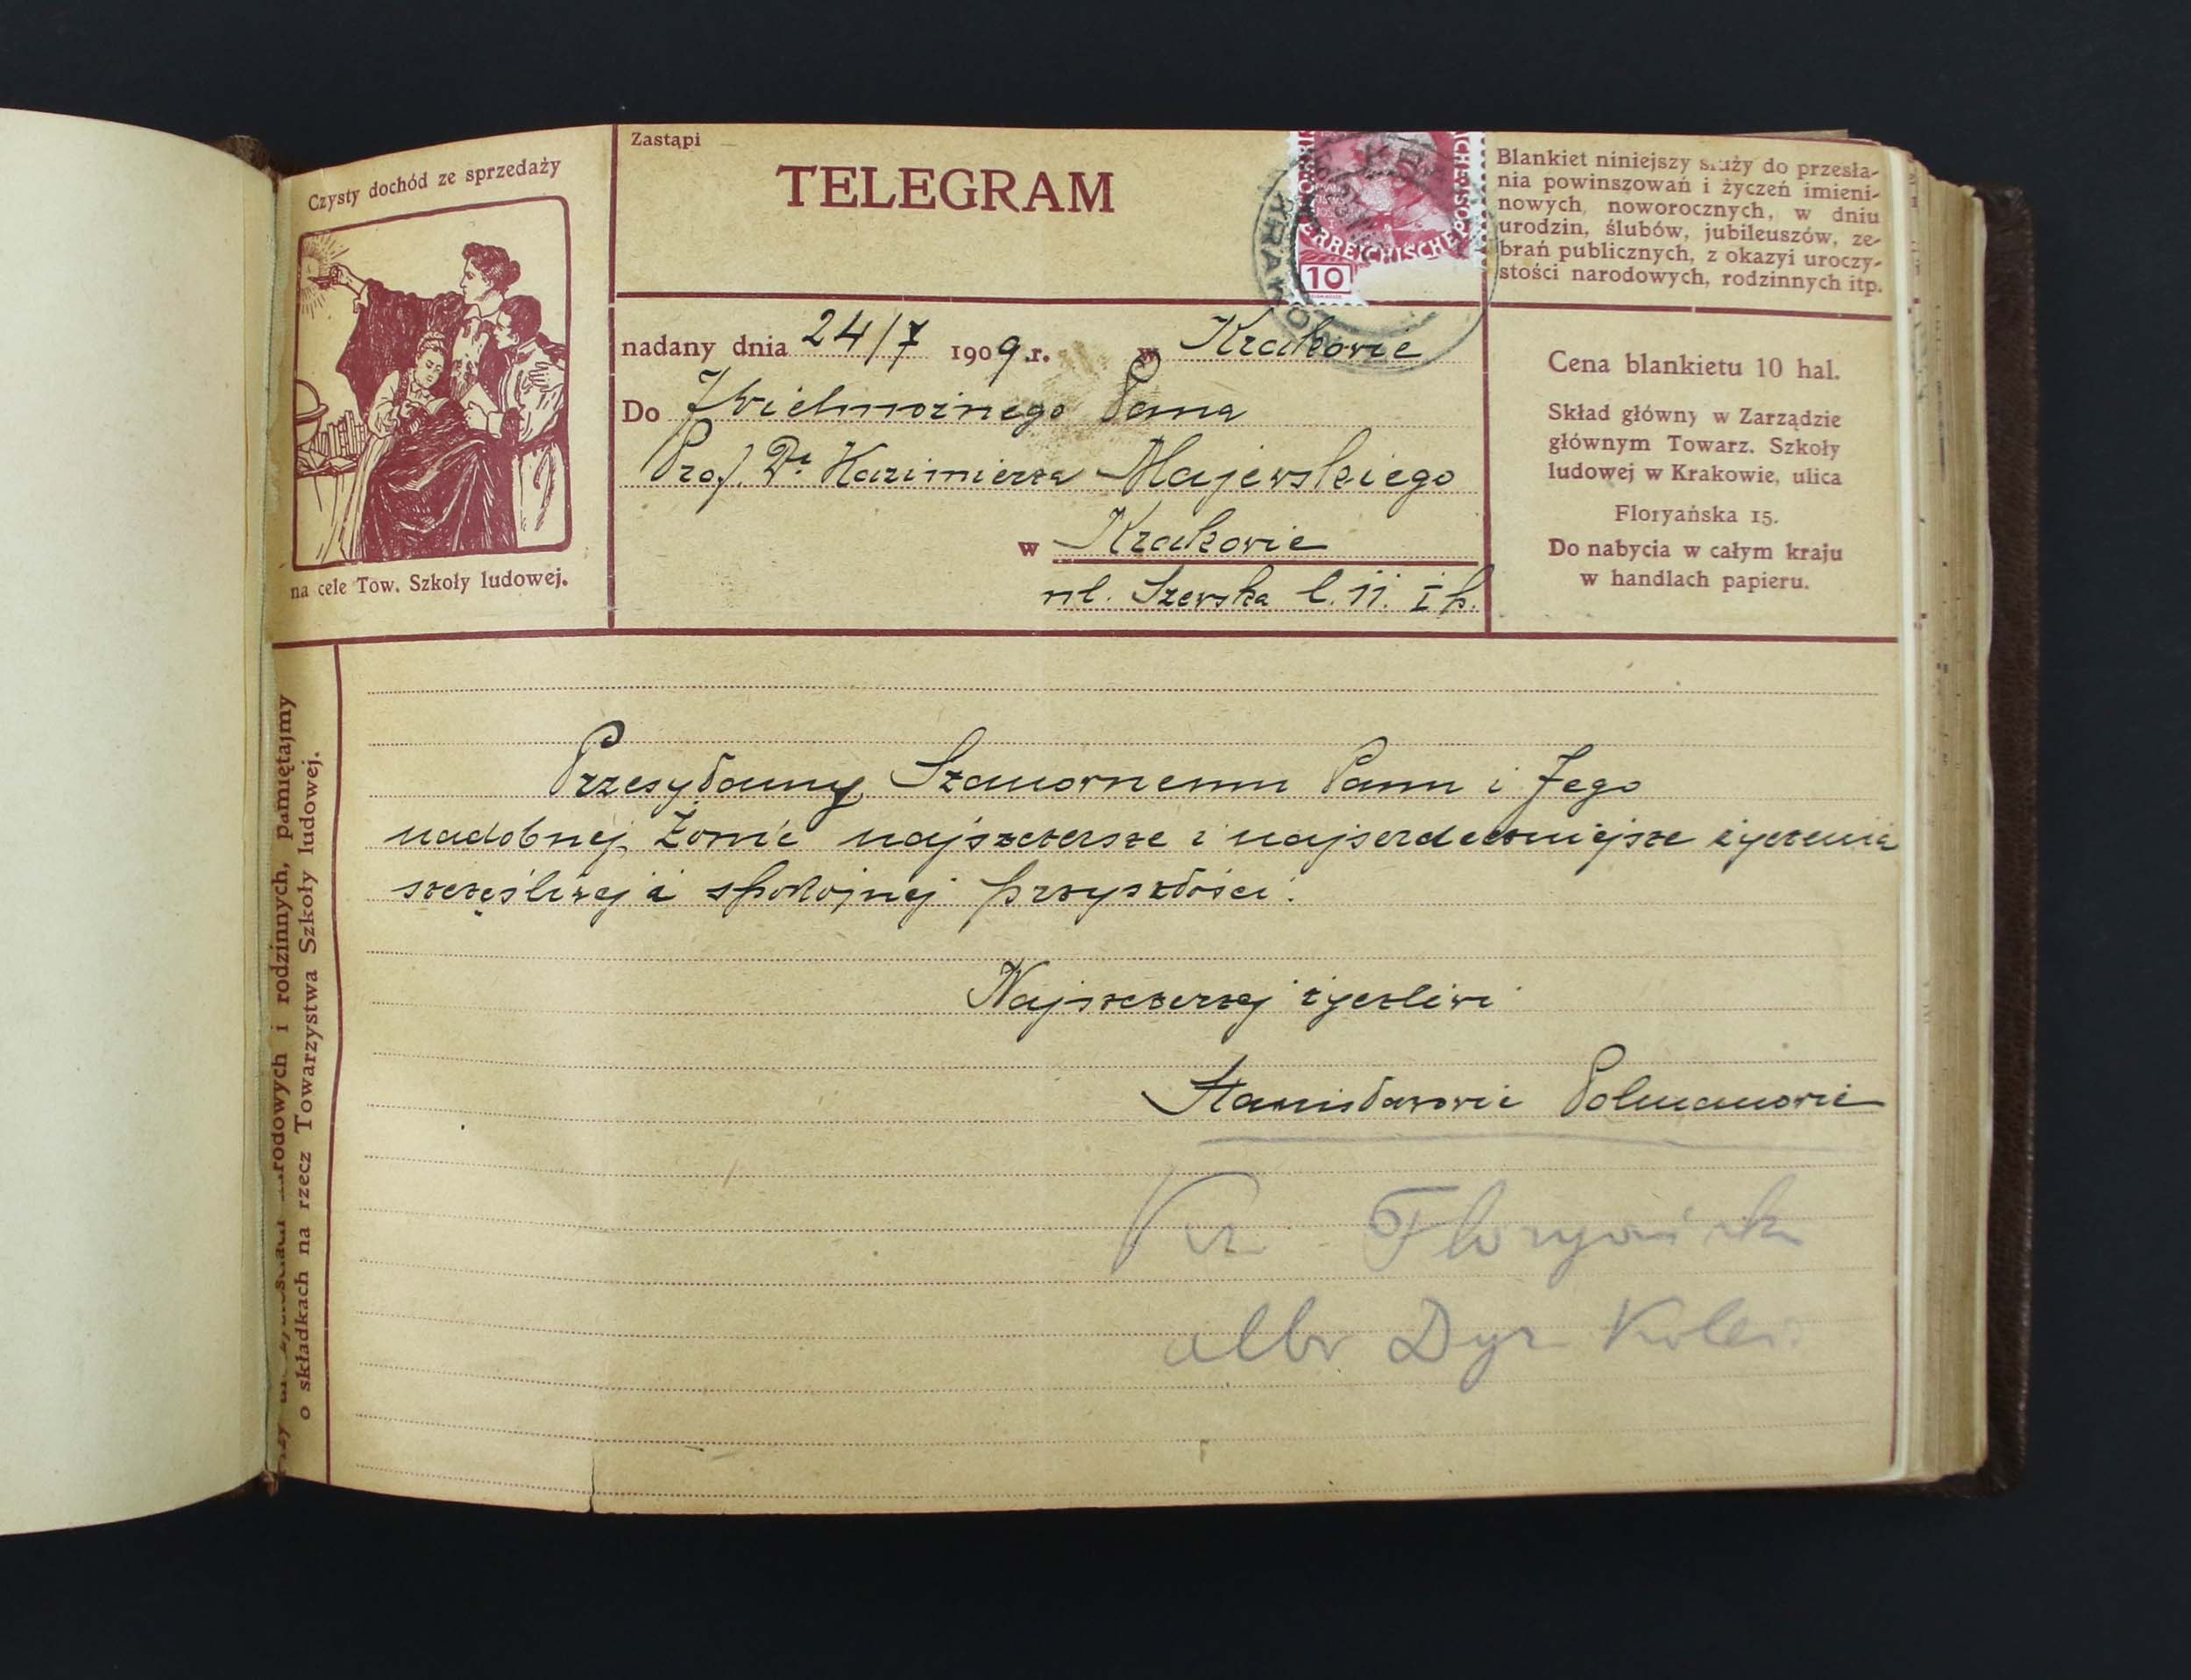 Czysty dochód ze sprzedaży
na cele Tow. Szkoły ludowej.
Zastąpi
TELEGRAM
10
KRAKÓW
nadany dnia 24/7 1909 r. w Krakowie
Do JWielmożnego Pana
Prof. Dr Kazimierza Majewskiego
w Krakowie
ul. Szewska l. 11. I p.
Blankiet niniejszy służy do przesła-
nia powinszowań i życzeń imieni-
nowych, noworocznych, w dniu
urodzin, ślubów, jubileuszów, ze-
brań publicznych, z okazyi uroczy-
stości narodowych, rodzinnych itp.
Cena blankietu 10 hal.
Skład główny w Zarządzie
głównym Towarz. Szkoły
ludowej w Krakowie, ulica
Floryańska 15.
Do nabycia w całym kraju
w handlach papieru.
i rodzinnych, pamiętajmy
o składkach na rzecz Towarzystwa Szkoły ludowej.
Przesyłamy Szanownemu Panu i Jego
nadobnej Żonie najszczersze i najserdeczniejsze życzenia
szczęśliwej i spokojnej przyszłości.
Najszczerzej życzliwi
Stanisławowie Polmanowie
Floryańska
albo Dyr Kolei